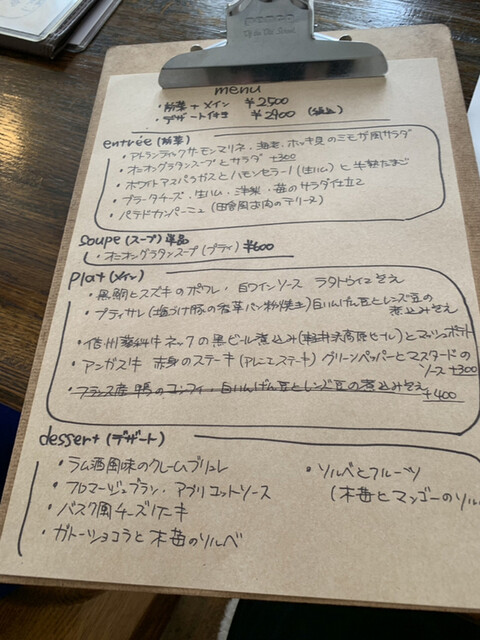 menu
・前菜 + メイン ¥2500
・デザート付き ¥2900 (税込)
entrée (前菜)
・アトランティックサーモンマリネ・海老・ホッキ貝のミモザ風サラダ
・オニオングラタンスープとサラダ +300
・ホワイトアスパラガスとハモンセラーノ(生ハム)と半熟たまご
・ブラータチーズ・生ハム・洋梨・苺のサラダ仕立て
・パテドカンパーニュ (田舎風お肉のテリーヌ)
soupe (スープ) 単品
・オニオングラタンスープ (プティ) ¥600
plat (メイン)
・黒鯛とスズキのポワレ・白ワインソース ラタトゥイユ添え
・プティサレ (塩づけ豚の香草パン粉焼き) 白いんげん豆とレンズ豆の
煮込み添え
・信州 牛ネックの黒ビール煮込み (軽井沢高原ビール) とマッシュポテト
・アンガス牛 赤身のステーキ (アレニエステーキ) グリーンペッパーとマスタードの
ソース +300
・フランス産 鴨のコンフィ・白いんげん豆とレンズ豆の煮込み添え
+400
dessert (デザート)
・ラム酒風味のクレームブリュレ
・フロマージュブラン・アプリコットソース
・バスク風チーズケーキ
・ガトーショコラと木苺のソルベ
・ソルベとフルーツ
(木苺とマンゴーのソル